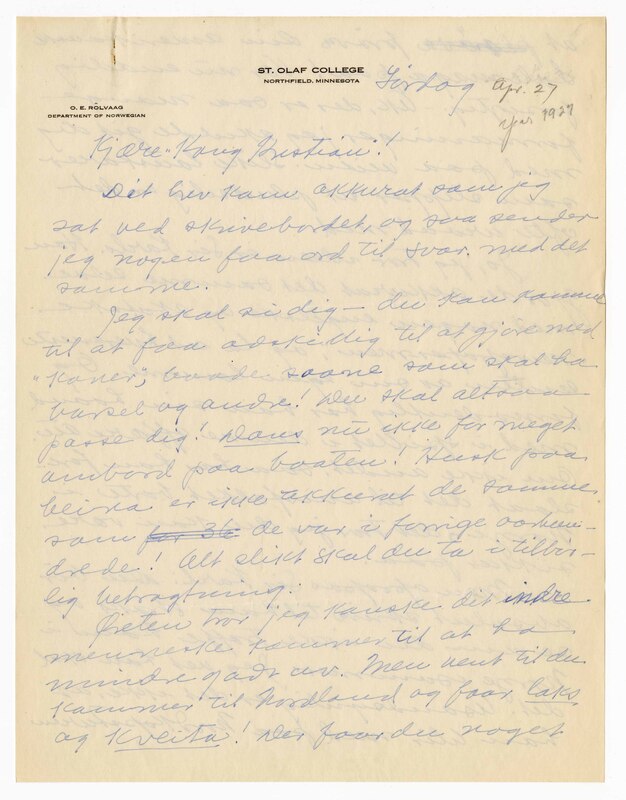 ST. OLAF COLLEGE
NORTHFIELD, MINNESOTA
O. E. RÖLVAAG
DEPARTMENT OF NORWEGIAN
Lördag Apr. 27
1927
Kjære "Kong Kristian"!
Dit brev kom akkurat som jeg
sat ved skrivebordet, og saa sender
jeg nogen faa ord til svar med det
samme.
Jeg skal si dig – du kan komme
til at faa adskillig til at gjøre med
"koner", baade saane som skal ha
barsel og andre! Du skal altsaa
passe dig! Dans nu ikke for meget
ombord paa baaten! Husk paa
beina er ikke akkurat de samme
som for 36 de var i forrige aarhun-
drede! Alt slikt skal du ta i tilbør-
lig betragtning.
tror jeg kanske dit indre
menneske kommer til at ha
mindre godt av. Men vent til du
kommer til Nordland og faar laks
og kveita! Der faar du noget